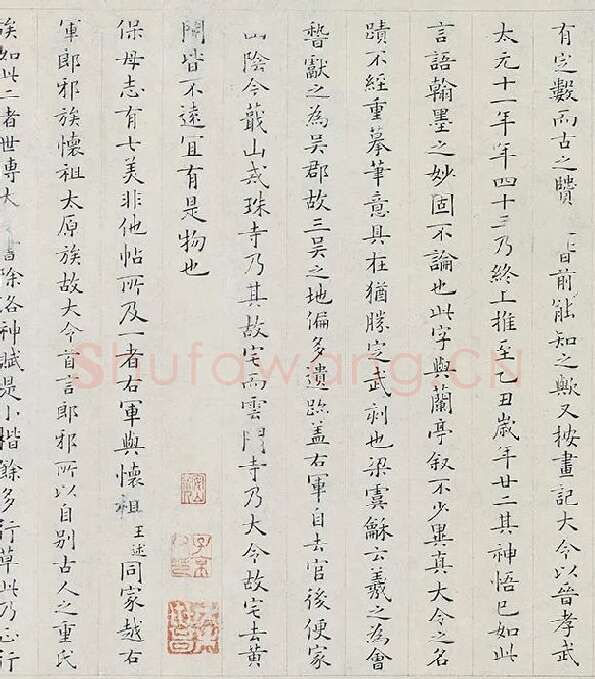 有定數而古之賸　皆前能知之歟又按畫記大令以晉孝武
太元十一年年四十三乃終上推至乙丑歲年廿二其神悟已如此
言語翰墨之妙固不論也此字與蘭亭叙不少異真大令之名
蹟不經重摹筆意具在猶勝定武刻也梁虞龢云羲之為會
嵇獻之為吳郡故三吳之地偏多遺跡盖右軍自去官後便家
山陰今蕺山戒珠寺乃其故宅而雲門寺乃大令故宅去黃
閍皆不遠宜有是物也
保母志有七美非他帖所及一者右軍與懷祖王述同家越右
軍郎邪族懷祖太原族故大令首言郎邪所以自別古人之重氏
族如此二者世傳大　書除洛神賦是小楷餘多行草此乃正行
Shufawang.CN